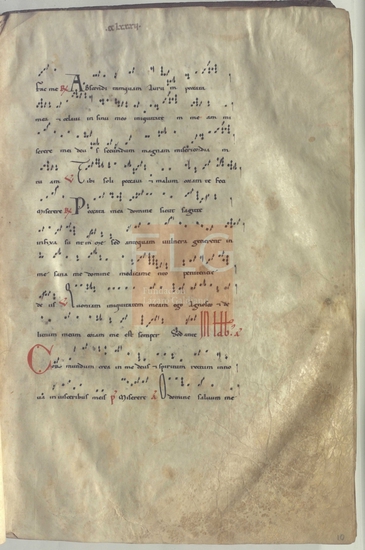 fac me R Abscondi tanquam aurum peccata
mea & celavi in sinu meo iniquitatem meam mi
serere mei deus secundum magnam misericordiam
tuam V Tibi soli peccavi & malum coram te feci
Miserere R Peccata mea domine sicut sagitte
infixa sunt in me sed antequam vulnera generent in
me sana me domine medicamento penitentie
deus V Quoniam iniquitatem meam ego agnosco & de
lictum meum coram me est semper Sed ante
Cor mundum crea in me deus & spiritum rectum inno
va in visceribus meis p Miserere a O domine salvum me
10